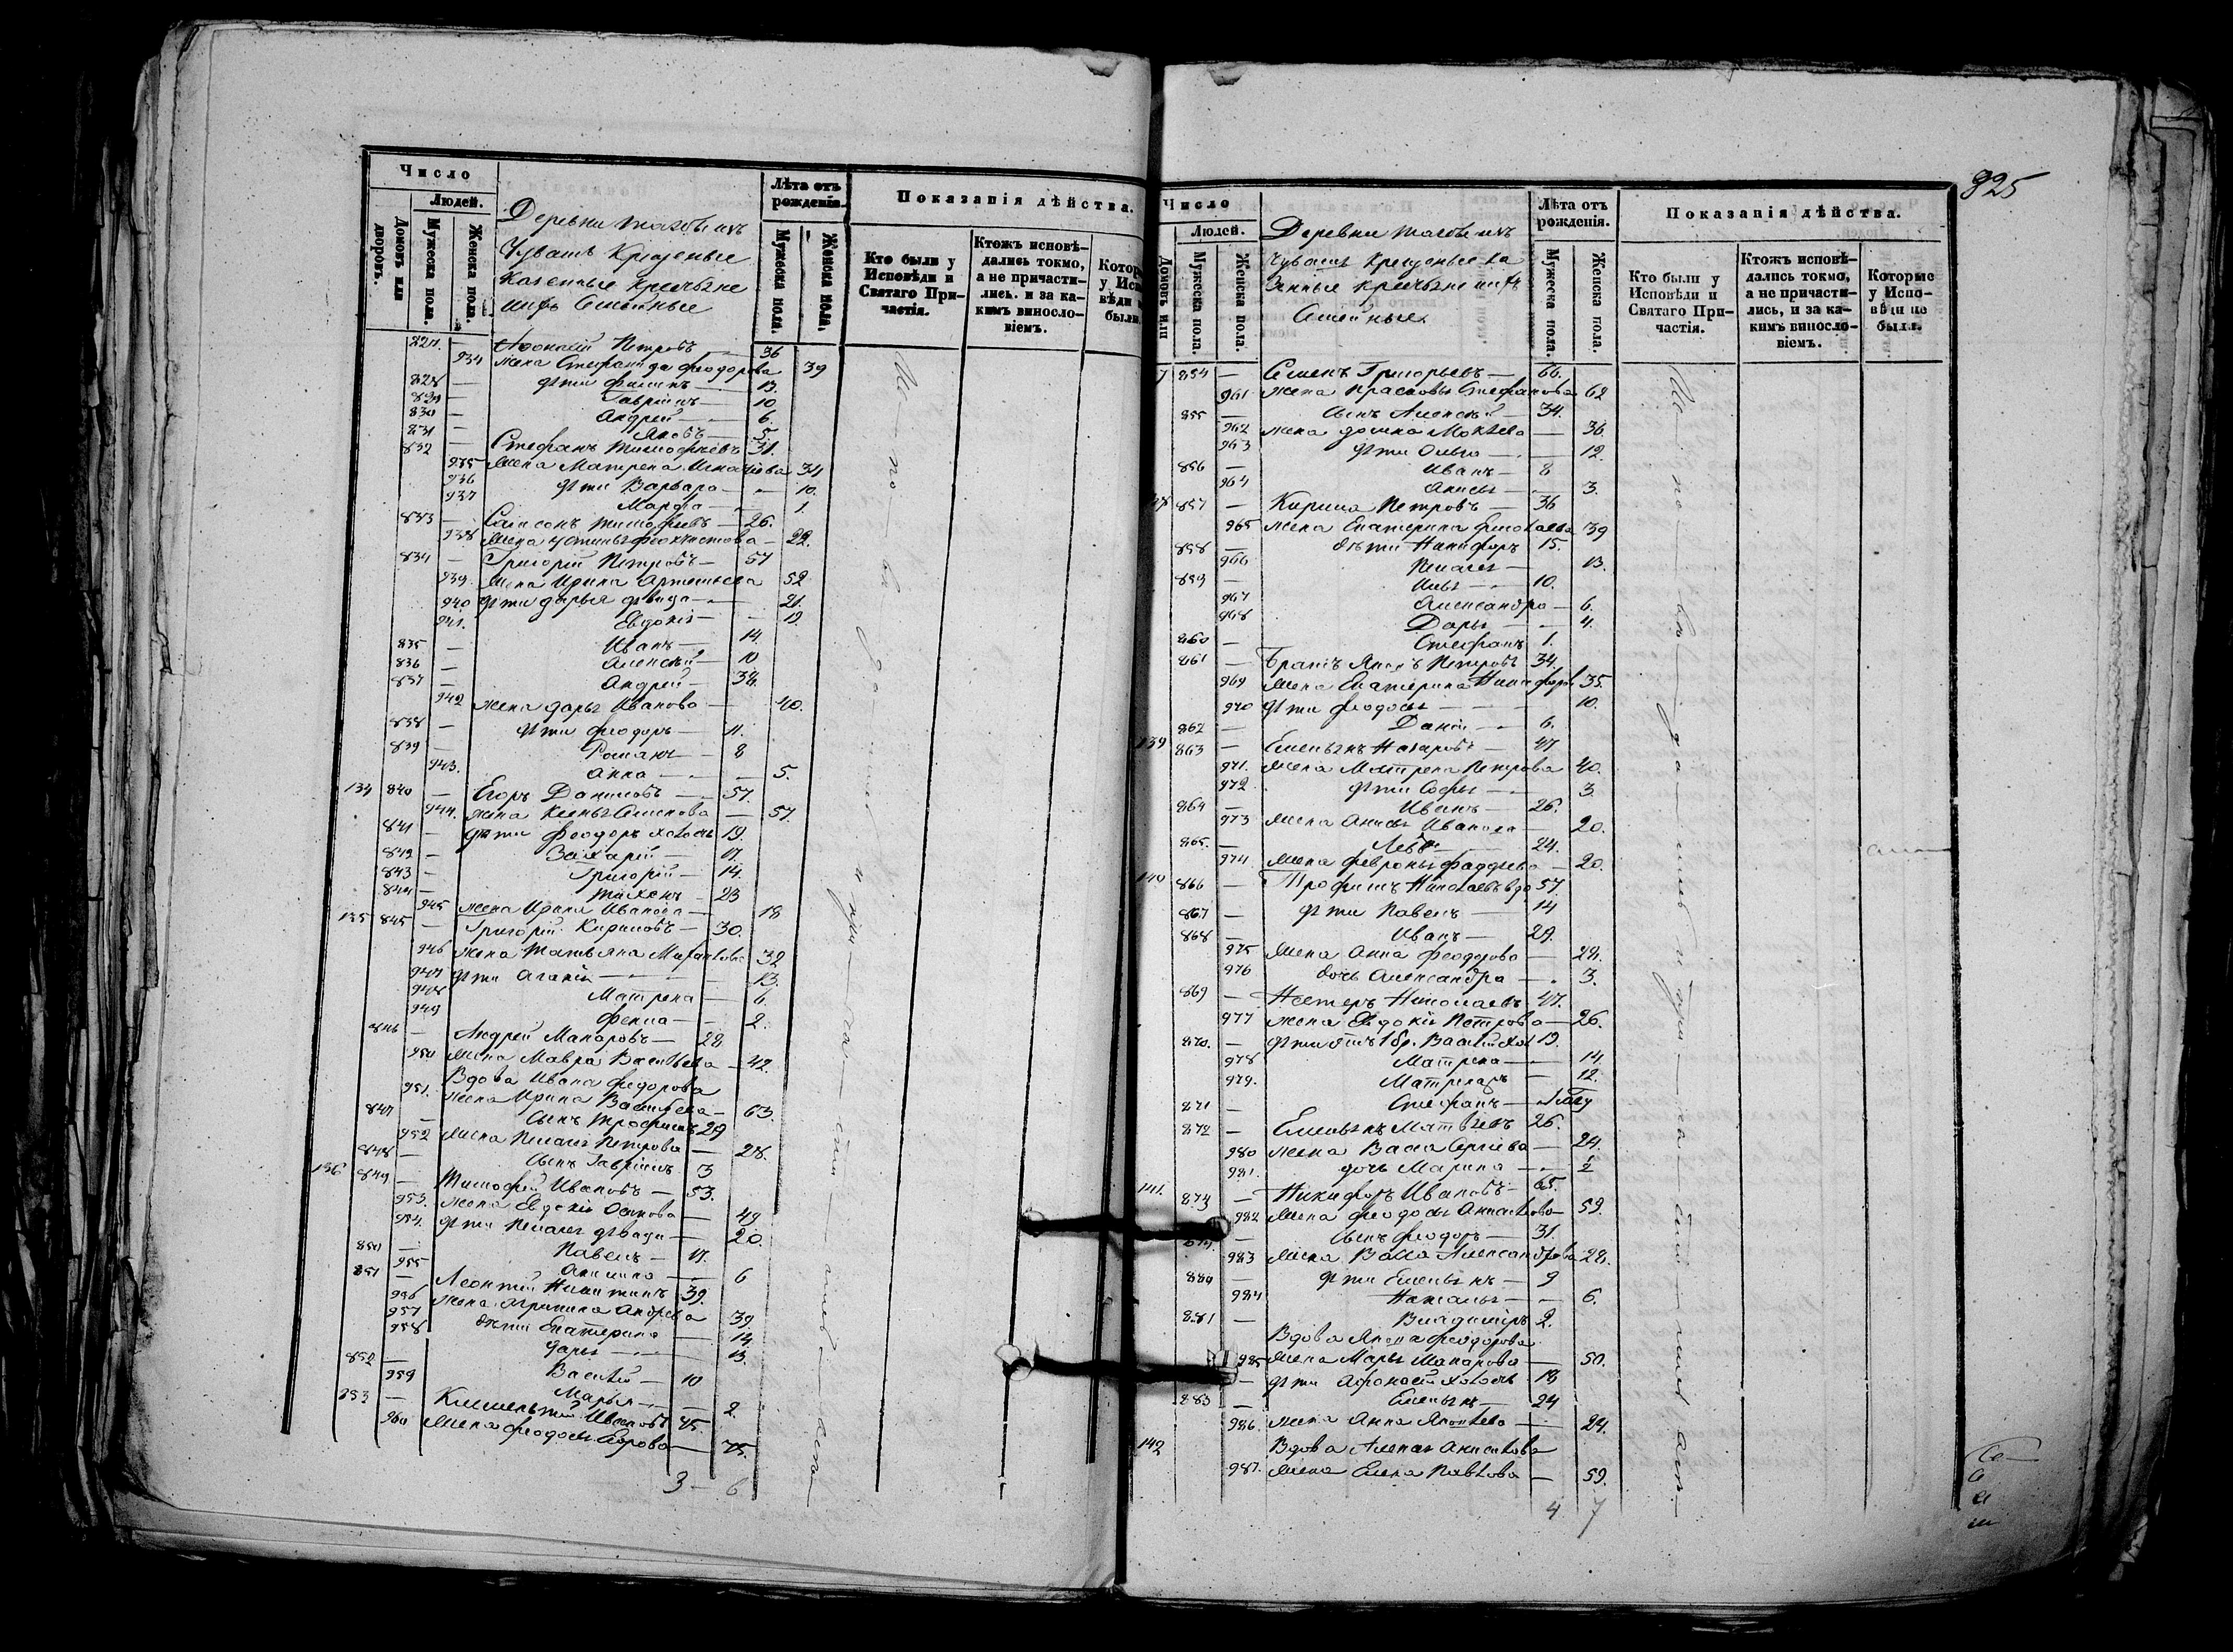 Число
Людей.
Домовъ или дворовъ.
Мужеска пола.
Женска пола.
Деревни
Чувашъ Крещеные
Казенные Крестьяне
Семейные
Лѣта отъ рожденія.
Мужеска пола.
Женска пола.
Показанія дѣйства.
Кто были у Исповѣди и Святаго Причастія.
Ктожъ исповѣдались токмо, а не причастились. и за какимъ винословіемъ.
827. — Афонасій Петровъ — 36
934 жена Степанида Феодорова 39
828 — дѣти Филипъ — 13.
829 — Гавріилъ — 10
830 — Андрей — 6.
831 — Яковъ — 5.
832 — Стефанъ Тимофѣевъ 31.
935 жена Матрена Игнатьева 34
936 дѣти Варвара — 10.
937 Марфа — 1.
833 — Самсонъ Тимофѣевъ — 26.
938 жена Устинья Феоктистова — 22.
834 — Григорій Петровъ — 57
939. жена Ирина Артемьева 52
940 дѣти Дарья дѣвица — 21.
941. Евдокія — 19
835 — Иванъ — 14
836 — Алексѣй — 10
837 — Андрей — 38.
942 жена Дарья Иванова — 40.
838 — дѣти Феодоръ — 11.
839 — Романъ — 8
943. Анна — 5.
134 840 — Егоръ Даниловъ — 57.
944. жена Ксенья Семенова — 57.
841 — дѣти Феодоръ холостъ 19.
842 — Захарій — 17.
843 — Григорій — 14.
844 — Тихонъ — 23
945 жена Ирина Иванова — 18
135 845 — Григорій Кириловъ — 30.
946 жена Татьяна Михайлова 32
947 дѣти Агапія — 13.
948 Матрена — 6.
949 Фекла — 2.
846 — Андрей Макаровъ — 28
950 жена Мавра Васильева — 42.
Вдова Ивана Федорова
951. жена Ирина Васильева — 63.
847 — сынъ Трофимъ 29
952 жена Пелагея Петрова — 28.
848 — сынъ Гавріилъ 3
136 849 — Тимофей Ивановъ — 53.
953. жена Евдокія Осипова — 49
954. дѣти Пелагея дѣвица — 20.
850 — Павелъ — 17.
955 Акилина — 6
851 — Леонтій Никитинъ 39.
956 жена Агрипина Андреева 39.
957 дѣти Екатерина — 14.
958 Дарья — 13.
852 — Василій — 10
959 Марья — 2.
853 — Климентій Ивановъ 45.
960 жена Феодосья Егорова — 45.
3 — 6
825
Число
Людей.
Домовъ или
Мужеска пола.
Женска пола.
Деревни
Чувашъ Крещеные Ка
зенные Крестьяне
Семейные
Лѣта отъ рожденія.
Мужеска пола.
Женска пола.
Показанія дѣйства.
Кто были у Исповѣди и Святаго Причастія.
Ктожъ исповѣдались токмо, а не причастились, и за какимъ винословіемъ.
Которые у Исповѣди не были.
7 854 — Семенъ Григорьевъ — 66.
961 жена Прасковья Стефанова 62
855 — сынъ Алексѣй — 34.
962 жена Домна Мокѣева — 36.
963 дѣти Ольга — 12.
856 — Иванъ — 8
964 Анисья — 3.
857 — Кирила Петровъ — 36
965 жена Екатерина Ермолаева 39
858 — дѣти Никифоръ 15.
966 Пелагея — 13.
859 — Илья — 10.
967 Александра — 6.
968 Дарья — 4.
860 — Стефанъ 1.
861 — Братъ Яковъ Петровъ 34.
969 жена Екатерина Никифоров 35.
970 дѣти Феодосья — 10.
862 — Данiилъ — 6.
139 863 — Емельянъ Назаровъ — 47
971. жена Матрена Петрова 40.
972 дѣти Софья — 3.
864 — Иванъ — 26.
973 жена Анисья Иванова — 20.
865. — Левъ — 24.
974 жена Февронья Фаддеева — 20.
140 866 — Трофимъ Николаевъ вдо 57
867 — дѣти Павелъ — 14
868 — Иванъ — 29.
975 жена Анна Феодорова — 28.
976 дочь Александра — 3.
869 — Нестеръ Николаевъ 47.
977 жена Евдокія Петрова — 26.
870. — дѣти отъ 1 бр. Василій хол 19.
978 Матрена — 14.
979. Матрена — 12.
871 — Стефанъ — 1 году
872 — Емельянъ Матвѣевъ 26.
980 жена Васса Сергѣева — 24.
981. дочь Марина — ½
141. 873 — Никифоръ Ивановъ — 65.
982 жена Феодосья Анисимова 59.
— сынъ Феодоръ — 31.
983 жена Васса Александрова 28.
880 — дѣти Емельянъ — 9
984 Наталья — 6.
881 — Владиміръ 2.
Вдова Якова Феодорова
985 жена Марья Макарова — 50.
— дѣти Афонасій холостъ 18
883 — Емельянъ — 24
986. жена Анна Яковлева — 24.
142 Вдова
987. жена Елена Павлова — 59.
4 7